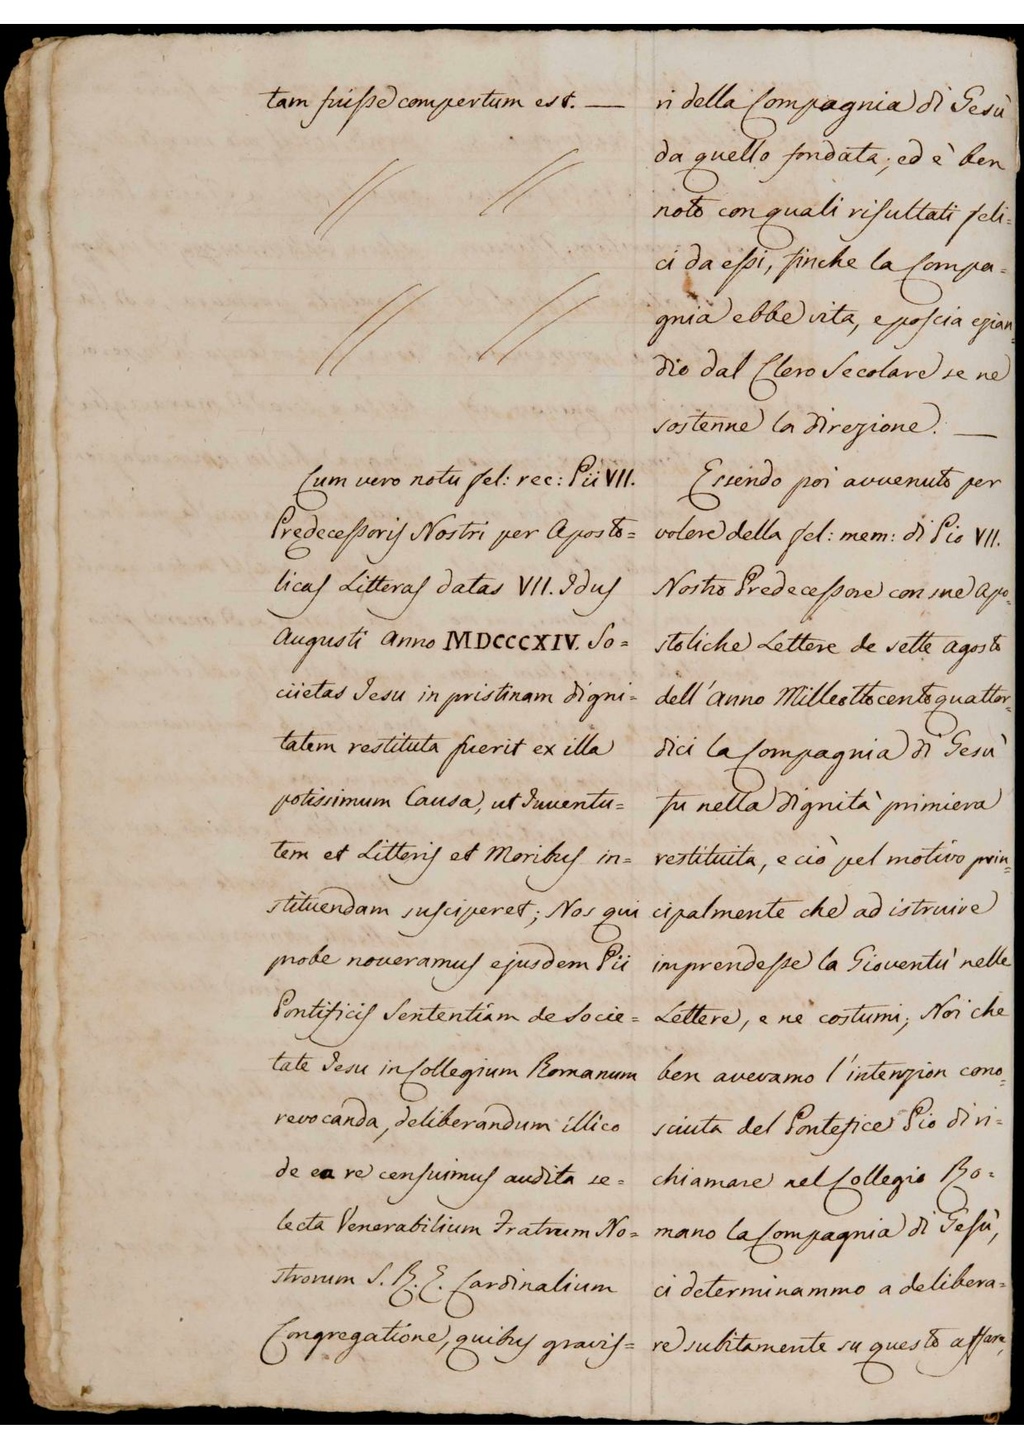 tam fuisse compertum est. —
Cum vero notu fel: rec: Pii VII.
Predecessoris Nostri per Aposto=
licas Litteras datas VII. Idus
Augusti Anno MDCCCXIV. So=
ciietas Jesu in pristinam digni=
tatem restituta fuerit ex illa
potissimum Causa, ut Juventu=
tem et Litteris et Moribus in=
stituendam susciperet; Nos qui
probe noveramus ejusdem Pii
Pontificis Sententiam de Socie=
tate Jesu in Collegium Romanum
revocanda, deliberandum illico
de ea re censuimus audita se=
lecta Venerabilium Fratrum No=
strorum S. R. E. Cardinalium
Congregatione, quibus gravis=
ri della Compagnia di Gesù
da quello fondata; ed è ben
noto con quali risultati feli=
ci da essi, finche la Compa=
gnia ebbe vita, e poscia ezian=
dio dal Clero Secolare se ne
sostenne la direzione. —
Essendo poi avvenuto per
volere della fel: mem: di Pio VII.
Nostro Predecessore con sue Apo=
stoliche Lettere de sette agosto
dell'anno Milleottocentoquattor=
dici la Compagnia di Gesù
fu nella dignità primiera
restituita, e ciò pel motivo prin=
cipalmente che ad istruire
imprendesse la Gioventù nelle
Lettere, e ne costumi; Noi che
ben avevamo l'intenzion cono=
sciuta del Pontefice Pio di ri=
chiamare nel Collegio Ro=
mano la Compagnia di Gesù,
ci determinammo a delibera=
re subitamente su questo affare,